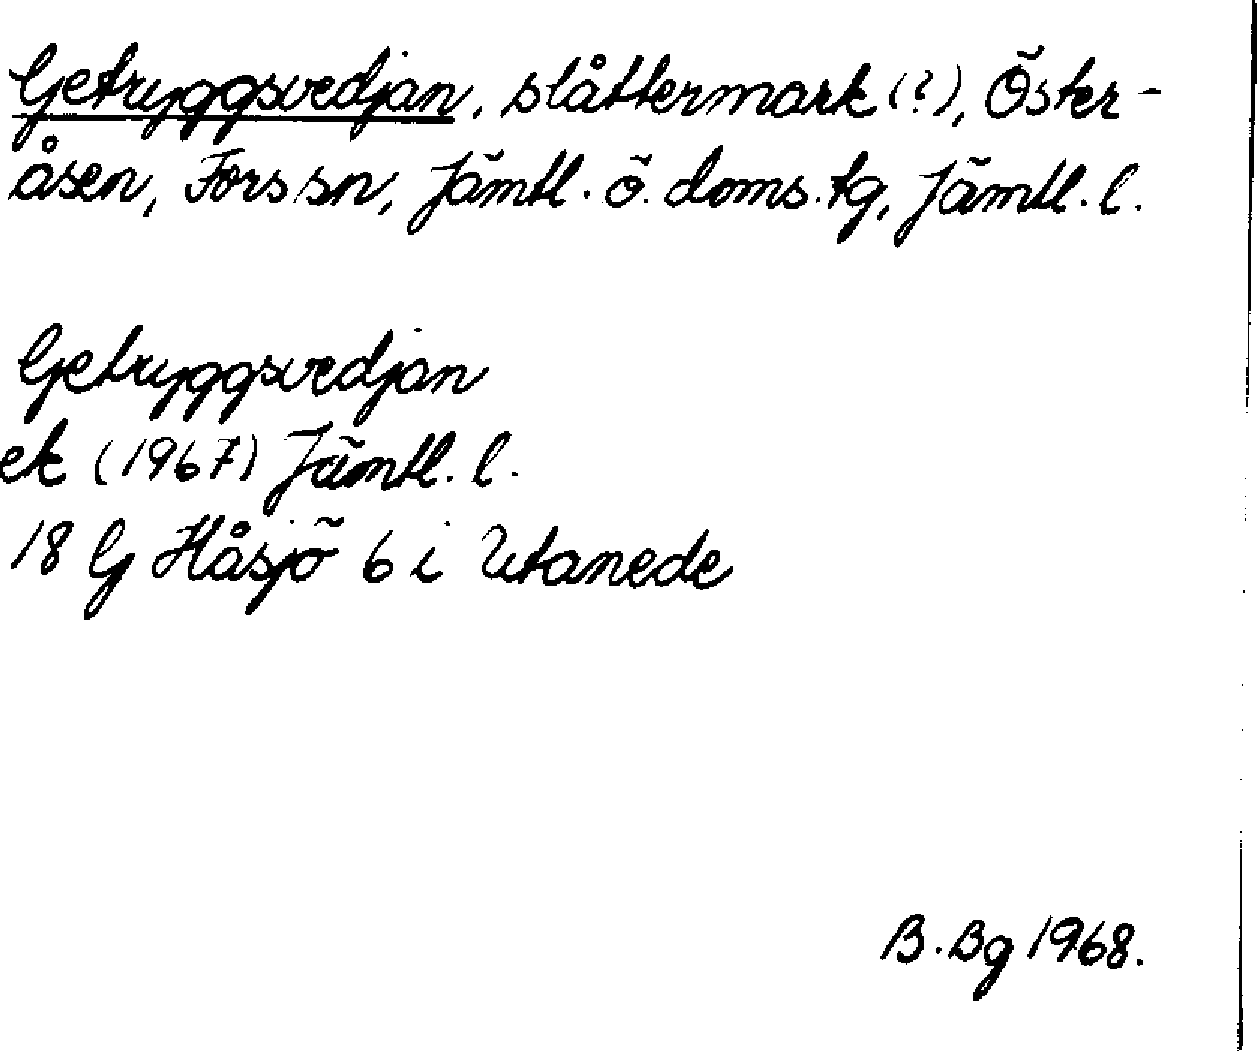 Getryggsvedjan, slåttermark (?), Öster-
åsen, Fors sn, Jämtl. ö. doms. tg, Jämtl. l.
Getryggsvedjan
ek (1967) Jämtl. l.
18 G Håsjö 6 i Utanede
B. Bg 1968.